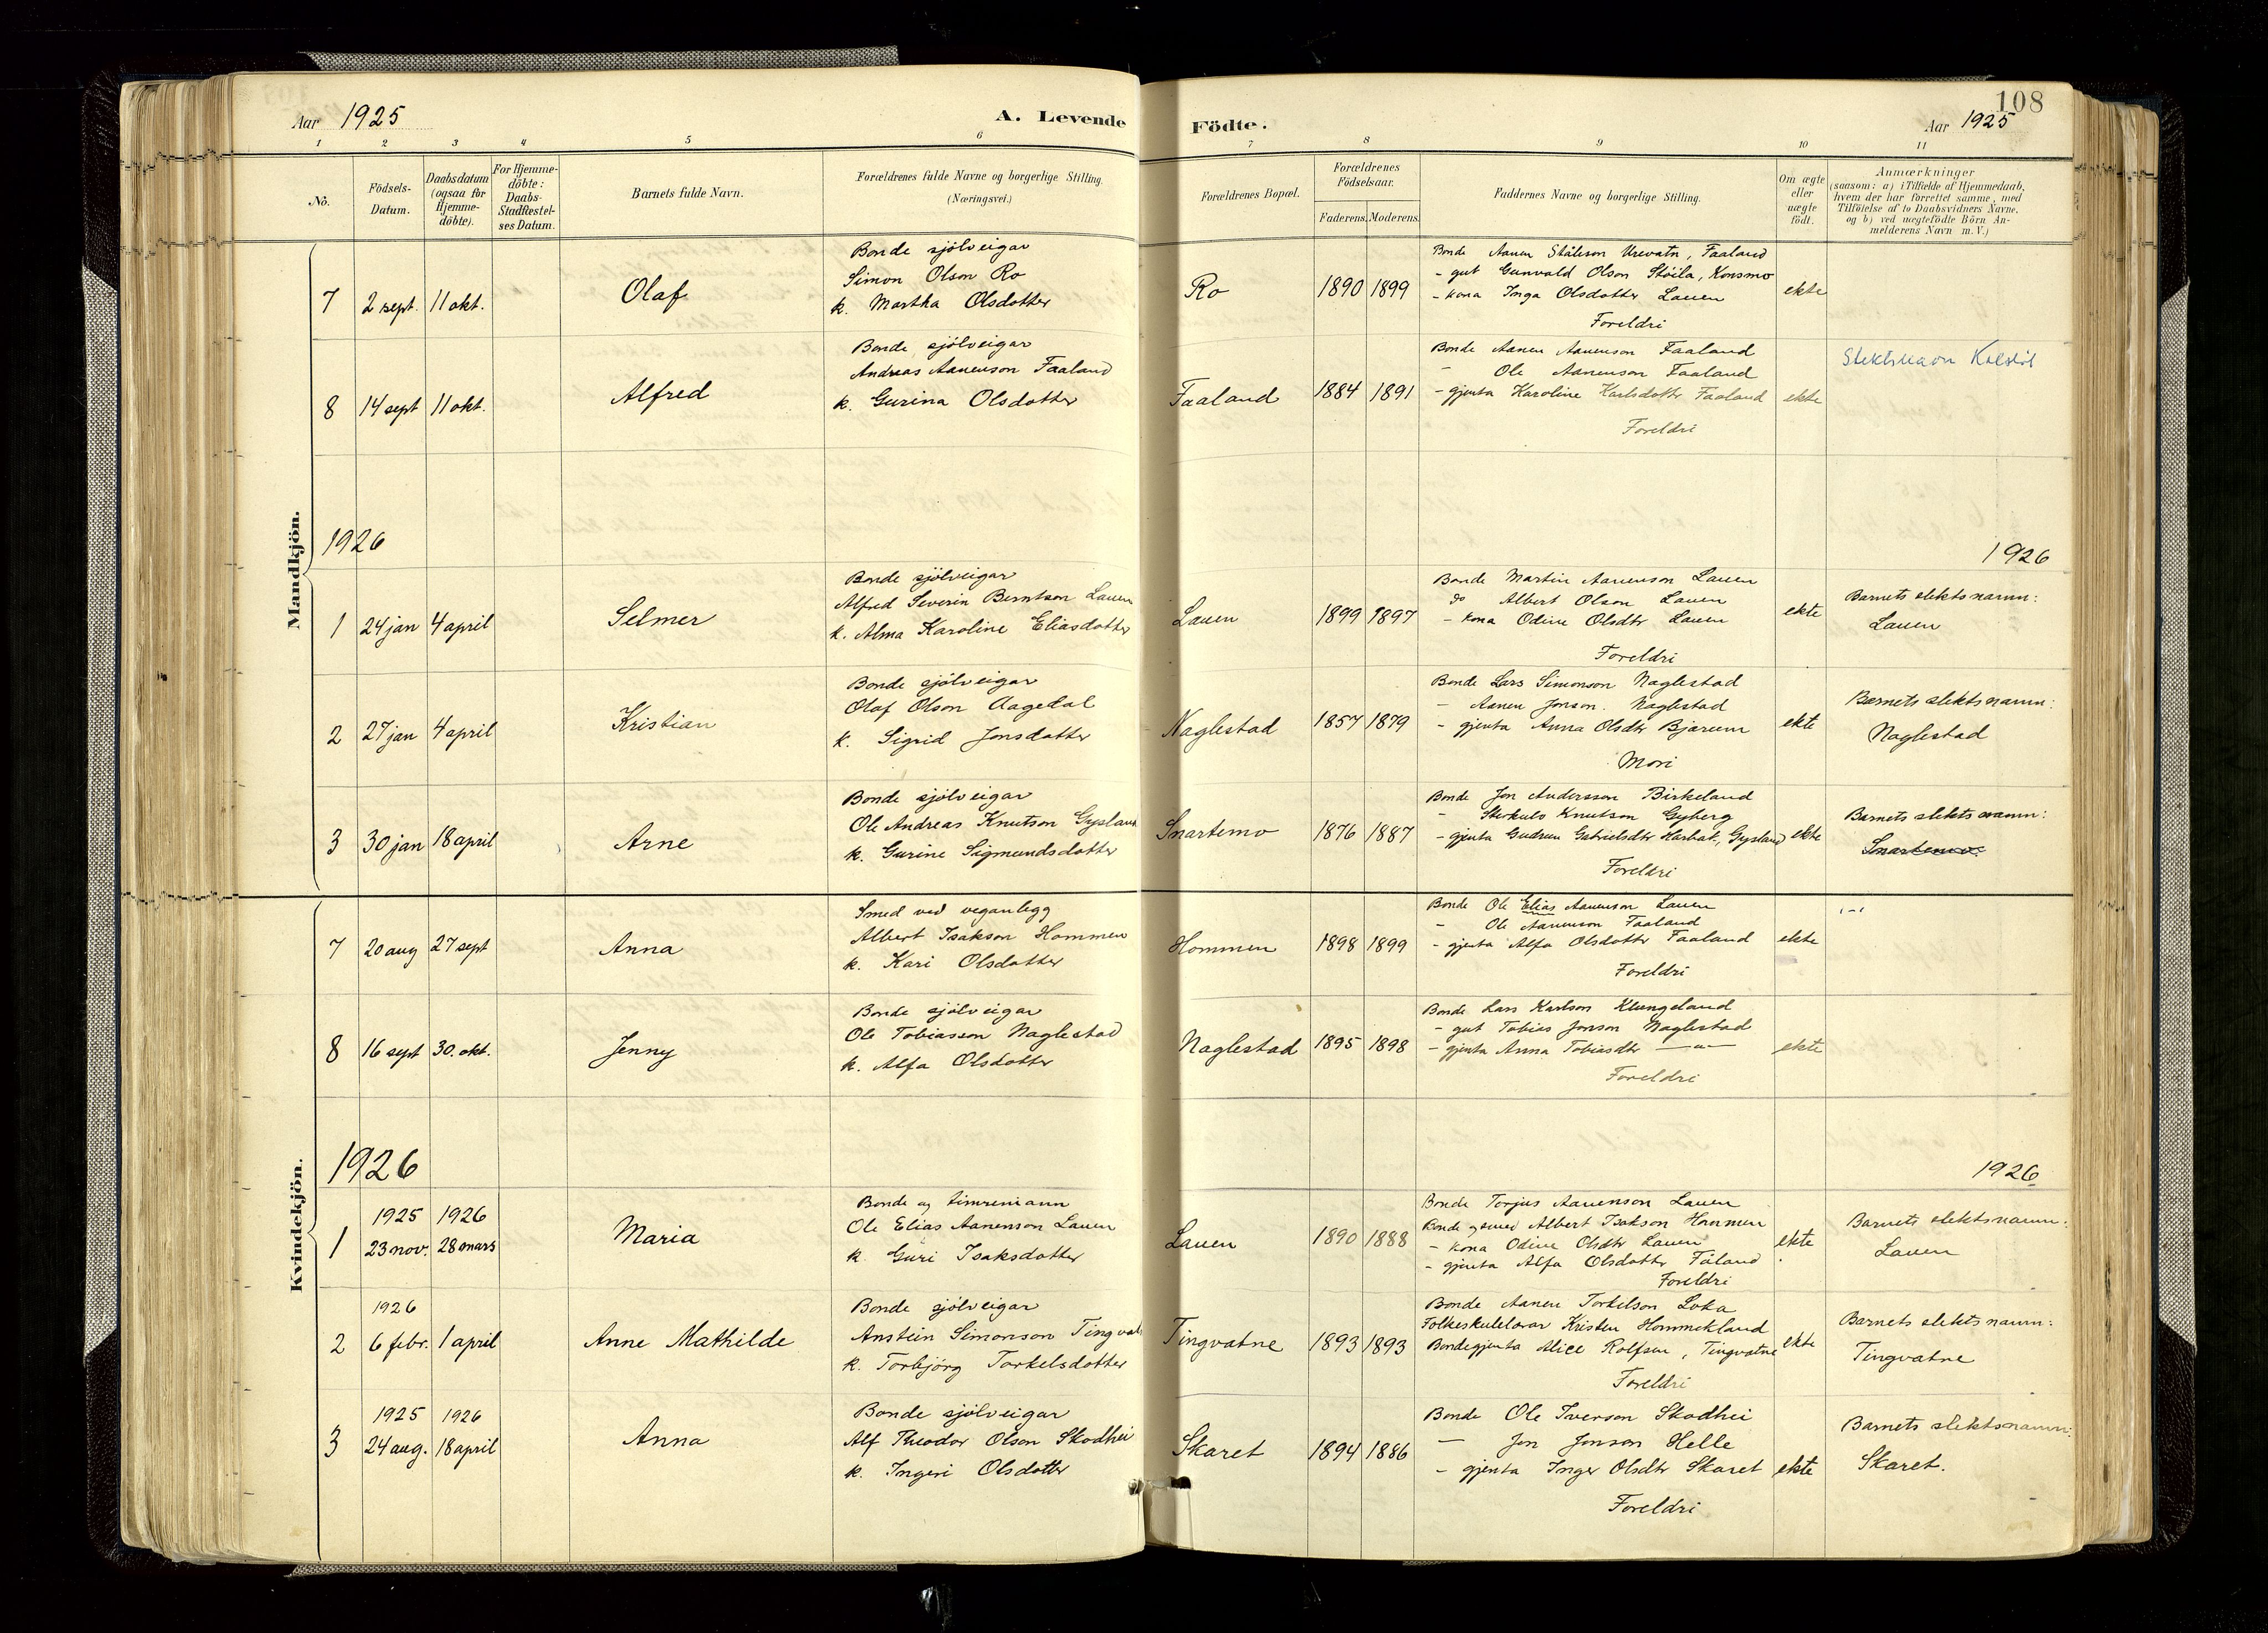 108
Aar 1925
A. Levende Födte.
Aar 1925
1 2 3 4 5 6 7 8 9 10 11
No.
Födsels-Datum.
Daabsdatum (ogsaa for Hjemmedöbte).
For Hjemmedöbte: Daabs-Stadfæstelses Datum.
Barnets fulde Navn.
Forældrenes fulde Navne og borgerlige Stilling. (Næringsvei.)
Forældrenes Bopæl.
Forældrenes Födselsaar.
Faderens. Moderens.
Faddernes Navne og borgerlige Stilling.
Om ægte eller uægte födt.
Anmærkninger
(saasom: a) i Tilfælde af Hjemmedaab,
hvem der har forrettet samme, med
Tilföielse af to Daabsvidners Navne,
og b) ved uægtefödte Börn An-
melderens Navn m. V.)
Mandkjön.
7 2 sept. 11 okt. Olaf
Bonde sjölveigar
Simon Olson Ro
k. Martha Olsdotter
Ro 1890 1899
Bonde Aanen Ståleson Urevatn, Faaland
- gut Gunvald Olson Stöila, Konsmo
- kona Inga Olsdotter Lauen
Foreldri
ekte
8 14 sept 11 okt. Alfred
Bonde sjölveigar
Andreas Aanenson Faaland
k. Gurina Olsdotter
Faaland 1884 1891
Bonde Aanen Aanenson Faaland
- Ole Aanenson Faaland
- gjenta Karoline Karlsdottr Faaland
Foreldri
ekte
Slektsnavn
1926
1926
1 24 jan 4 april Selmer
Bonde sjölveigar
Alfred Severin Berntson Lauen
k. Alma Karoline Eliasdotter
Lauen 1899 1897
Bonde Martin Aanenson Lauen
do Albert Olson Lauen
- kona Odine Olsdtr Lauen
Foreldri
ekte
Barnets slektsnamn:
Lauen
2 27 jan 4 april Kristian
Bonde sjölveigar
Olaf Olson Aagedal
k. Sigrid Jonsdotter
Naglestad 1857 1879
Bonde Lars Simonson Naglestad
- Aanen Jonson. Naglestad
- gjenta Anna Olsdtr Bjærum
Mori
ekte
Barnets slektsnamn:
Naglestad
3 30 jan 18 april Arne
Bonde sjölveigar
Ole Andreas Knutson Gysland
k. Gurine Sigmundsdotter
Snartemo 1876 1887
Bonde Jon Andersson Birkeland
- Knutson Gyberg
- gjenta Gudrun Gabrielsdtr Gysland
Foreldri
ekte
Barnets slektsnamn:
Snartemo.
Kvindekjön.
7 20 aug 27 sept Anna
Smed ved veganlegg
Albert Isakson Hommen
k. Kari Olsdotter
Hommen 1898 1899
Bonde Ole Elias Aanenson Lauen
- Ole Aanenson Faaland
- gjenta Alfa Olsdotter Faaland
Foreldri
ekte
8 16 sept 30. okt. Jenny
Bonde sjölveigar
Ole Tobiasson Naglestad
k. Alfa Olsdotter
Naglestad 1895 1898
Bonde Lars Karlson Klungeland
- gut Tobias Jonson Naglestad
- gjenta Anna Tobiasdtr -"-
Foreldri
ekte
1926
1926
1 1925 23 nov. 1926 28 mars Maria
Bonde og timremann
Ole Elias Aanenson Lauen
k. Guri Isaksdotter
Lauen 1890 1888
Bonde Torjus Aanenson Lauen
Bonde og smed Albert Isakson Hommen
- kona Odine Olsdtr Lauen
- gjenta Alfa Olsdotter Fåland
Foreldri
ekte
Barnets slektsnamn:
Lauen
2 1926 6 febr. 1 april Anne Mathilde
Bonde sjölveigar
Anstein Simonson Tingvatn
k. Torbjörg Torkelsdotter
Tingvatne 1893 1893
Bonde Aanen Torkelson Loka
Folkeskulelærar Kristen Hommekland
Bondegjenta Alice Rolfsen, Tingvatne
Foreldri
ekte
Barnets slektsnamn:
Tingvatne
3 1925 24 aug. 1926 18 april Anna
Bonde sjölveigar
Alf Theodor Olson Skodhei
k. Ingeri Olsdotter
Skaret 1894 1886
Bonde Ole Iverson Skodhei
- Jon Jonson Helle
- gjenta Inger Olsdtr Skaret
Foreldri
ekte
Barnets slektsnamn:
Skaret.